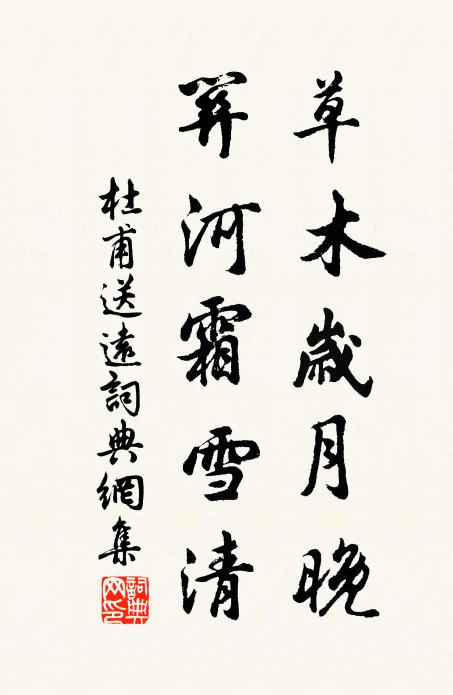 草木歲月晚
關河霜雪清
杜甫送遠詞典網集
詞典
网印